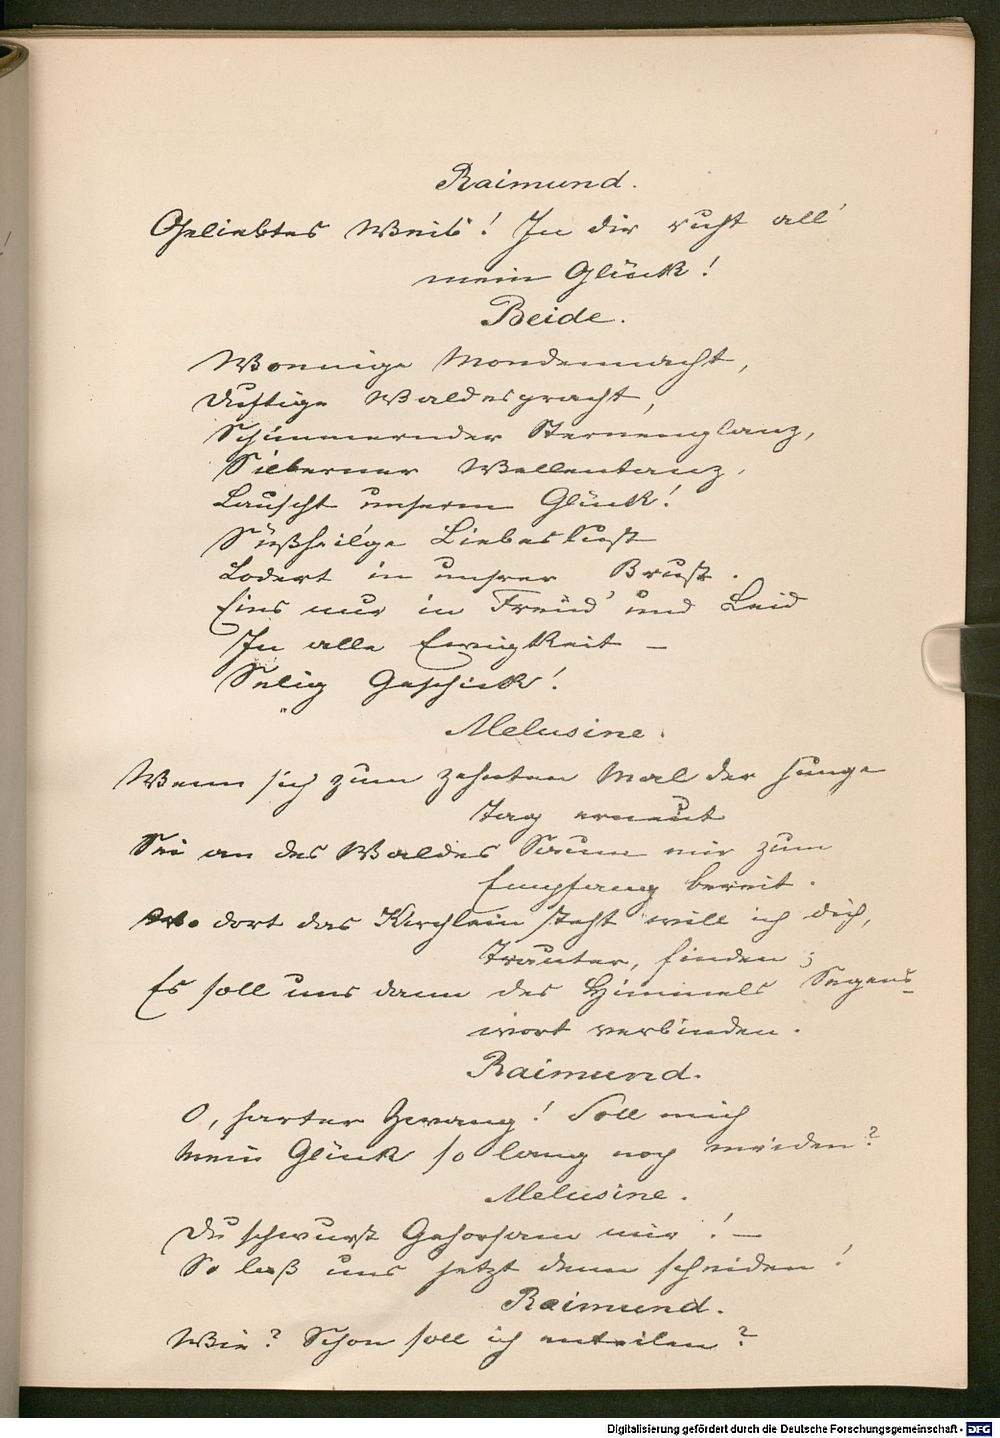 Raimund.
Geliebtes Weib! In dir ruht all'
mein Glück!
Beide.
Wonnige Mondennacht,
Duftige Waldespracht,
Schimmernder Sternenglanz,
Silberner Wellentanz,
Lauscht unserm Glück!
Süßheil'ge Liebeslust
Lodert in unsrer Brust.
Eins nur in Freud' und Leid
In alle Ewigkeit —
Selig Geschick!
Melusine.
Wenn sich zum zehnten Mal der junge
Tag erneut
Sei an des Waldes Saum mir zum
Empfang bereit.
Wo dort das Kirchlein steht will ich dich,
Trauter, finden;
Es soll uns dann des Himmels Segens-
wort verbinden.
Raimund.
O, harter Zwang! Soll mich
Mein Glück so lang noch meiden?
Melusine.
Du schwurst Gehorsam mir! —
So laß uns jetzt denn scheiden!
Raimund.
Wie? Schon soll ich enteilen?
Digitalisierung gefördert durch die Deutsche Forschungsgemeinschaft - DFG